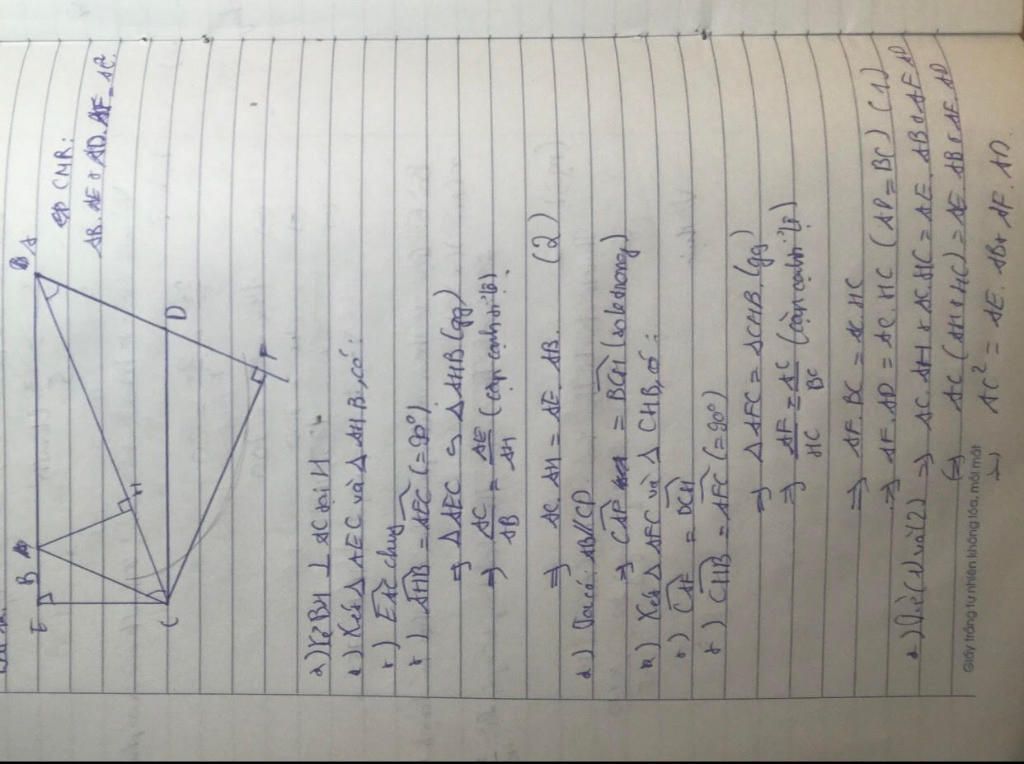 CMR:
AB. AE + AD. AF = AC²
E B A
H
C D
F
a) Kẻ BH ⊥ AC tại H
+) Xét Δ AEC và Δ AHB, có:
+) EAC chung
+) AHB = AEC (= 90°)
=> Δ AEC ∽ Δ AHB (gg)
=> AC/AB = AE/AH
=> AC. AH = AE. AB. (2)
Ta có: AB // CD
=> = BCH (so le trong)
+) Xét Δ AFC và Δ CHB, có:
+) CAF = BCH
+) CHB = AFC (= 90°)
=> Δ AFC = Δ CHB (gg)
=> AF/HC = AC/BC
=> AF. BC = AC. HC
=> AF. AD = AC. HC (AD = BC) (1)
+) Từ (1) và (2) => AC. AH + AC. HC = AE. AB + AF. AD
(=) AC (AH + HC) = AE. AB + AF. AD
AC² = AE. AB + AF. AD.
Giấy trắng tự nhiên không lóa, mỏi mắt